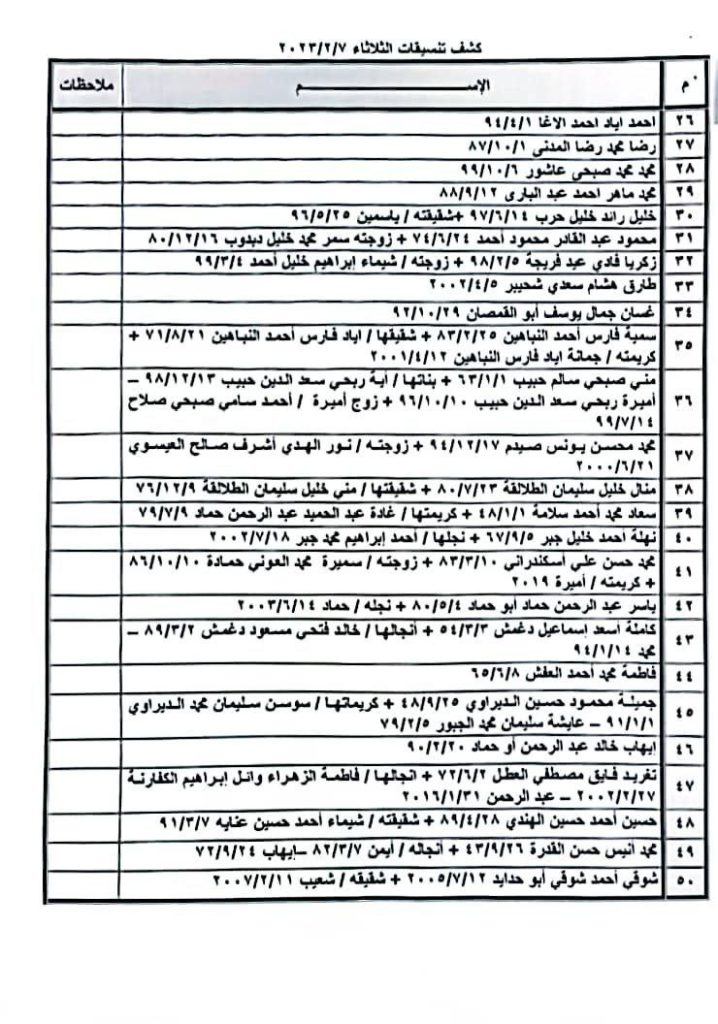 كشف تنسيقات الثلاثاء ٢٠٢٣/٢/٧
م الإســـــــم ملاحظات
٢٦ احمد اياد احمد الاغا ٩٤/٤/١
٢٧ رضا محمد رضا المدنى ٨٧/١٠/١
٢٨ محمد محمد صبحي عاشور ٩٩/١٠/٦
٢٩ محمد ماهر احمد عبد البارى ٨٨/٩/١٢
٣٠ خليل رائد خليل حرب ٩٧/٦/١٤ +شقيقته / ياسمين ٩٦/٥/٢٥
٣١ محمود عبد القادر محمود أحمد ٧٤/٦/٢٤ + زوجته سمر محمد خليل ديدوب ٨٠/١٢/١٦
٣٢ زكريا فادي عيد فريجة ٩٨/٢/٥ + زوجته / شيماء إبراهيم خليل أحمد ٩٩/٣/٤
٣٣ طارق هشام سعدي شحيبر ٢٠٠٢/٤/٥
٣٤ غسان جمال يوسف أبو القمصان ٩٢/١٠/٢٩
٣٥ سمية فارس أحمد النباهين ٨٣/٢/٢٥ + شقيقها / اياد فارس أحمد النباهين ٧١/٨/٢١ +
كريمته / جمانة اياد فارس النباهين ٢٠٠١/٤/١٢
٣٦ مني صبحي سالم حبيب ٦٣/١/١ + بناتها / آية ربحي سعد الدين حبيب ٩٨/١٢/١٣ –
أميرة ربحي سعد الدين حبيب ٩٦/١٠/١٠ + زوج أميرة / أحمد سامي صبحي صلاح
٩٩/٧/١٤
٣٧ محمد محسن يونس صيدم ٩٤/١٢/١٧ + زوجته / نور الهدي أشرف صالح العيسوي
٢٠٠٠/٦/٢١
٣٨ منال خليل سليمان الطلالقة ٨٠/٧/٢٣ + شقيقتها / مني خليل سليمان الطلالقة ٧٦/١٢/٩
٣٩ سعاد محمد أحمد سلامة ٤٨/١/١ + كريمتها / غادة عبد الحميد عبد الرحمن حماد ٧٩/٧/٩
٤٠ نهلة أحمد خليل جبر ٦٧/٩/٥ + نجلها / أحمد إبراهيم محمد جبر ٢٠٠٢/٧/١٨
٤١ محمد حسن علي أسكندراني ٨٣/٣/١٠ + زوجته / سميرة محمد العوني حمادة ٨٦/١٠/١٠
+ كريمته / أميرة ٢٠١٩
٤٢ ياسر عبد الرحمن حماد أبو حماد ٨٠/٥/٤ + نجله / حماد ٢٠٠٣/٦/١٤
٤٣ كاملة أسعد إسماعيل دغمش ٥٤/٣/٣ + أنجالها / خالد فتحي مسعود دغمش ٨٩/٣/٢ –
محمد ٩٤/١/١٤
٤٤ فاطمة محمد أحمد العفش ٦٥/٦/٨
٤٥ جميلة محمود حسين الديراوي ٤٨/٩/٢٥ + كريماتها / سوسن سليمان محمد الديراوي
٩١/١/١ – عايشة سليمان محمد الجبور ٧٩/٢/٥
٤٦ إيهاب خالد عبد الرحمن أو حماد ٩٠/٢/٢٠
٤٧ تغريد فايق مصطفي العطل ٧٢/٦/٢ + انجالها / فاطمة الزهراء وائل إبراهيم الكفارنة
٢٠٠٢/٢/٢٧ – عبد الرحمن ٢٠١٦/١/٣١
٤٨ حسين أحمد حسين الهندي ٨٩/٤/٢٨ + شقيقته / شيماء أحمد حسين عنايه ٩١/٣/٧
٤٩ محمد أنيس حسن القدرة ٤٣/٩/٢٦ + أنجاله / أيمن ٨٢/٣/٧ –إيهاب ٧٢/٩/٢٤
٥٠ شوقي أحمد شوقي أبو حدايد ٢٠٠٥/٧/١٢ + شقيقه / شعيب ٢٠٠٧/٢/١١